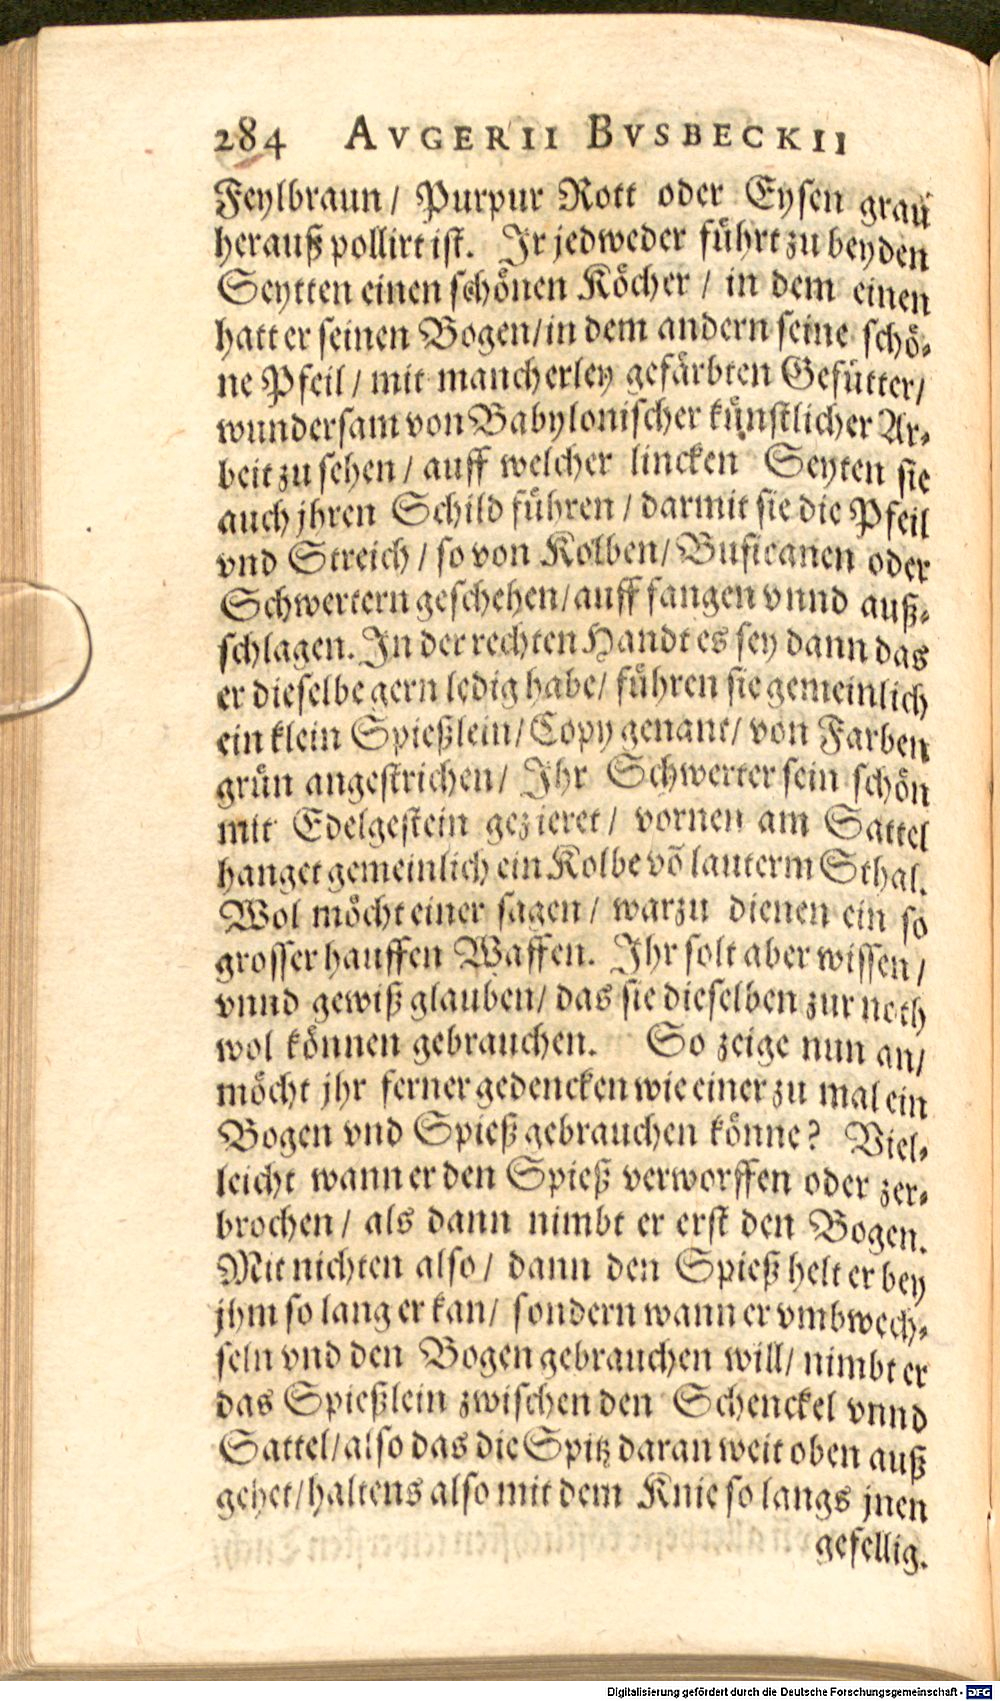 284 AVGERII BVSBECKII
Feylbraun/ Purpur Rott oder Eysen grau
herauß pollirt ist. Ir jedweder führt zu beyden
Seytten einen schönen Köcher / in dem einen
hatt er seinen Bogen/in dem andern seine schö-
ne Pfeil / mit mancherley gefärbten Gefütter/
wundersam von Babylonischer künstlicher Ar-
beit zu sehen / auff welcher lincken Seyten sie
auch jhren Schild führen / darmit sie die Pfeil
vnd Streich / so von Kolben/ Busicanen oder
Schwertern geschehen/auff fangen vnnd auß-
schlagen. In der rechten Handt es sey dann das
er dieselbe gern ledig habe/ führen sie gemeinlich
ein klein Spießlein/ Copy genant/ von Farben
grün angestrichen/ Ihr Schwerter sein schön
mit Edelgestein gezieret / vornen am Sattel
hanget gemeinlich ein Kolbe võ lauterm Sthal.
Wol möcht einer sagen / warzu dienen ein so
grosser hauffen Waffen. Ihr solt aber wissen /
vnnd gewiß glauben/ das sie dieselben zur noth
wol können gebrauchen. So zeige nun an/
möcht jhr ferner gedencken wie einer zu mal ein
Bogen vnd Spieß gebrauchen könne? Viel-
leicht wann er den Spieß verworffen oder zer-
brochen / als dann nimbt er erst den Bogen.
Mit nichten also / dann den Spieß helt er bey
jhm so lang er kan/ sondern wann er vmbwech-
seln vnd den Bogen gebrauchen will/ nimbt er
das Spießlein zwischen den Schenckel vnnd
Sattel/also das die Spitz daran weit oben auß
gehet/haltens also mit dem Knie so langs jnen
gefellig.
Digitalisierung gefördert durch die Deutsche Forschungsgemeinschaft - DFG